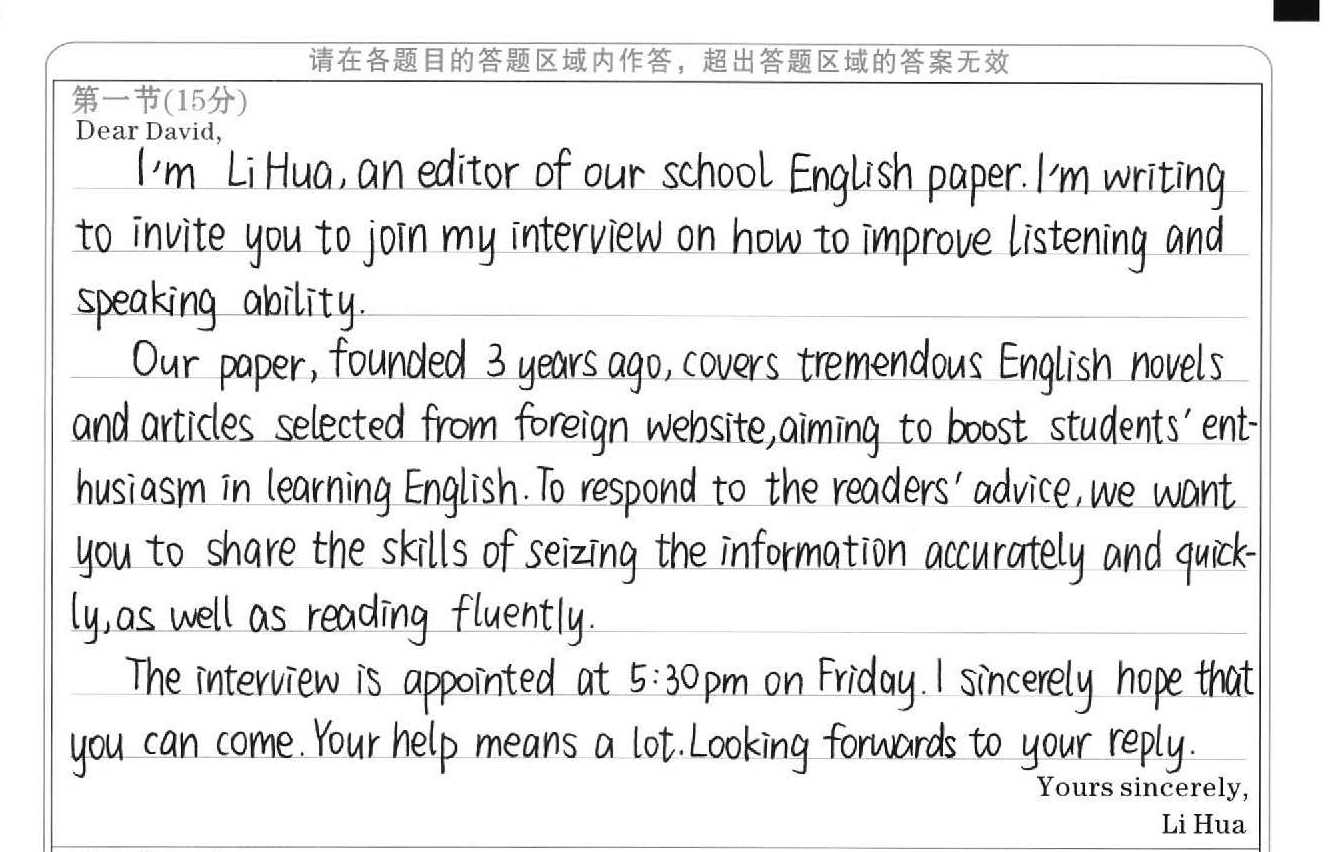 请在各题目的答题区域内作答，超出答题区域的答案无效
第一节(15分)
Dear David,
I'm Li Hua, an editor of our school English paper. I'm writing
to invite you to join my interview on how to improve listening and
speaking ability.
Our paper, founded 3 years ago, covers tremendous English novels
and articles selected from foreign website, aiming to boost students' ent-
husiasm in learning English. To respond to the readers' advice, we want
you to share the skills of seizing the information accurately and quick-
ly, as well as reading fluently.
The interview is appointed at 5:30pm on Friday. I sincerely hope that
you can come. Your help means a lot. Looking forwards to your reply.
Yours sincerely,
Li Hua